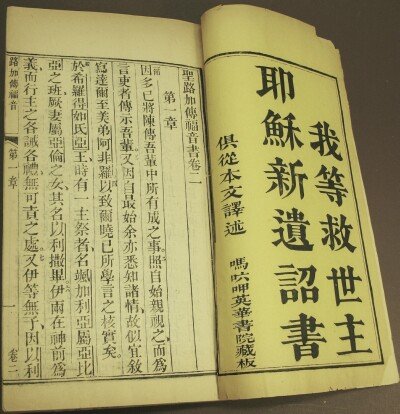 我等救世主
耶穌新遺詔書
俱從本文譯述
嗎呷英華書院藏板
聖路加傳福音書卷二
第一章
因多已將陳傳吾輩中所有成之事照自始親視之而為
言吏者傳示吾輩又因自最始余亦悉知諸情故似宜敘
寫達爾至美弟阿非羅以致爾曉已所學言之核實矣
於希羅得如氐亞王時有一主祭者名颯加利亞屬亞比
亞之班厥妻屬亞倫之女其名以利撒畢伊兩在神前為
義而行主之各誡各禮無可責之處又伊等無子因以利
路加傳福音 第一章 一 卷二